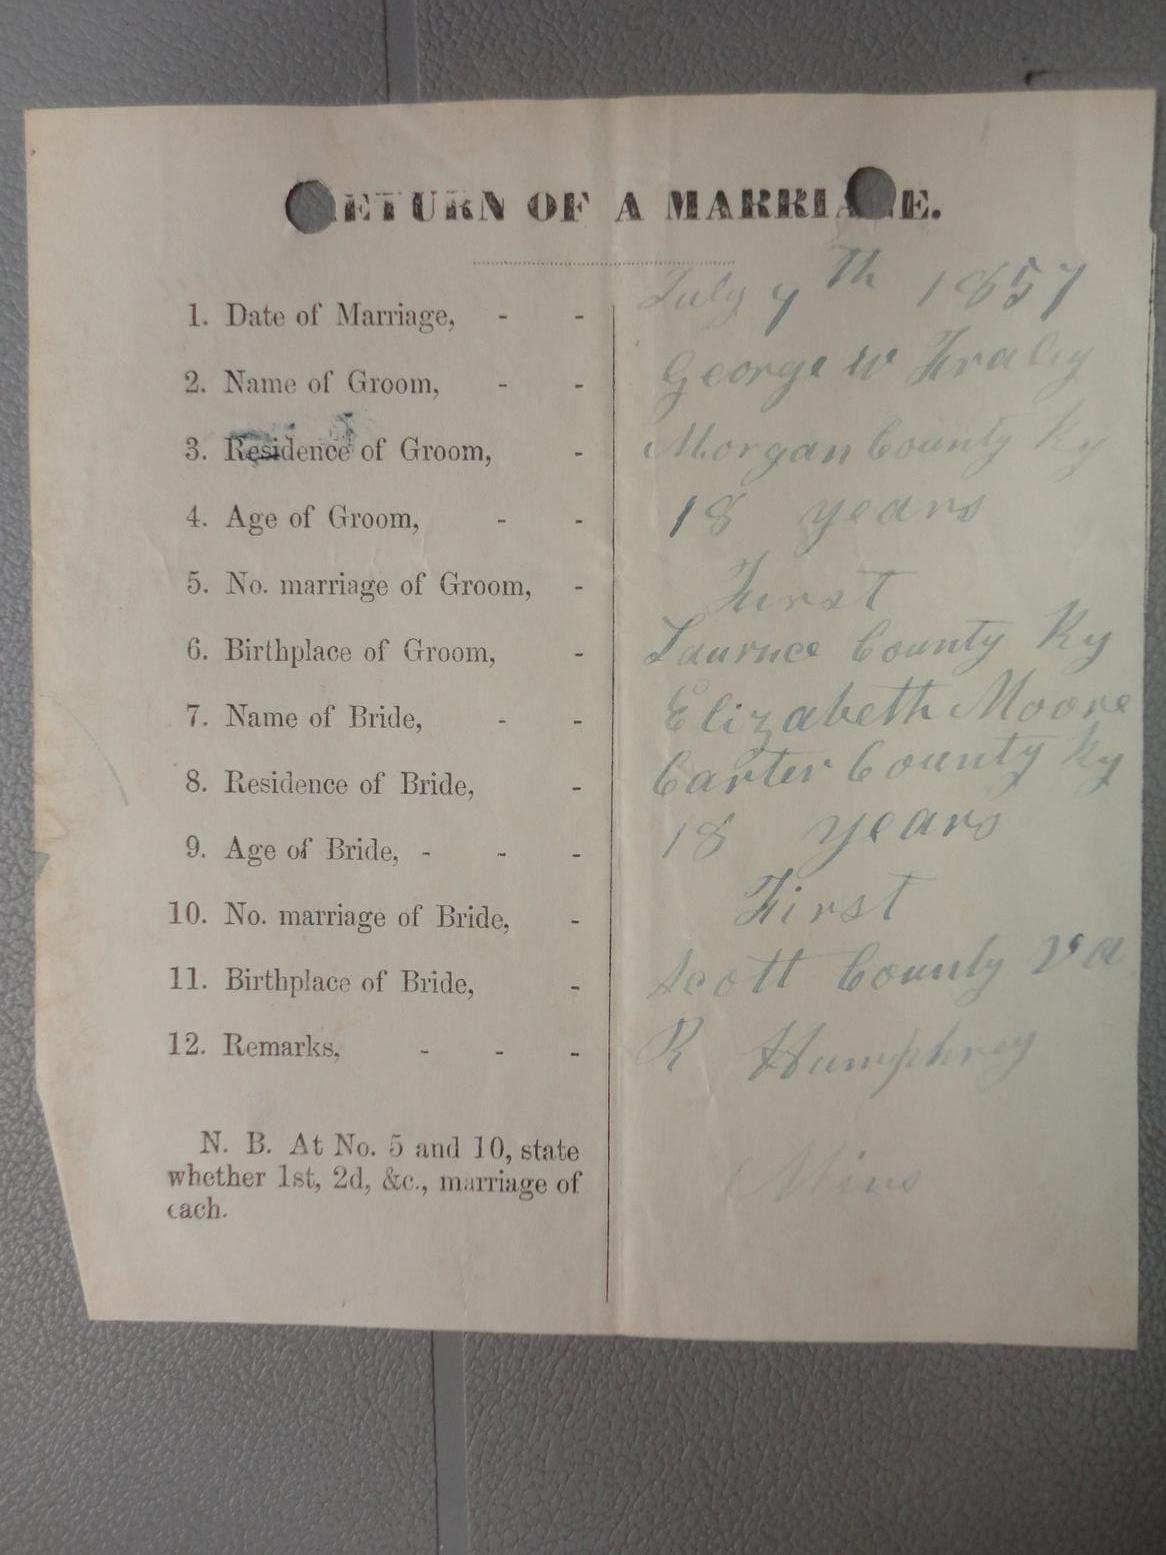 RETURN OF A MARRIAGE.
1. Date of Marriage, - - July 7th 1857
2. Name of Groom, - - George W Fraley
3. Residence of Groom, - Morgan County Ky
4. Age of Groom, - - 18 years
5. No. marriage of Groom, - First
6. Birthplace of Groom, - Laurnce County Ky
7. Name of Bride, - - Elizabeth Moore
8. Residence of Bride, - Carter County Ky
9. Age of Bride, - - - 18 years
10. No. marriage of Bride, - First
11. Birthplace of Bride, - Scott County Va
12. Remarks, - - - R Humphrey
N. B. At No. 5 and 10, state
whether 1st, 2d, &c., marriage of
each.